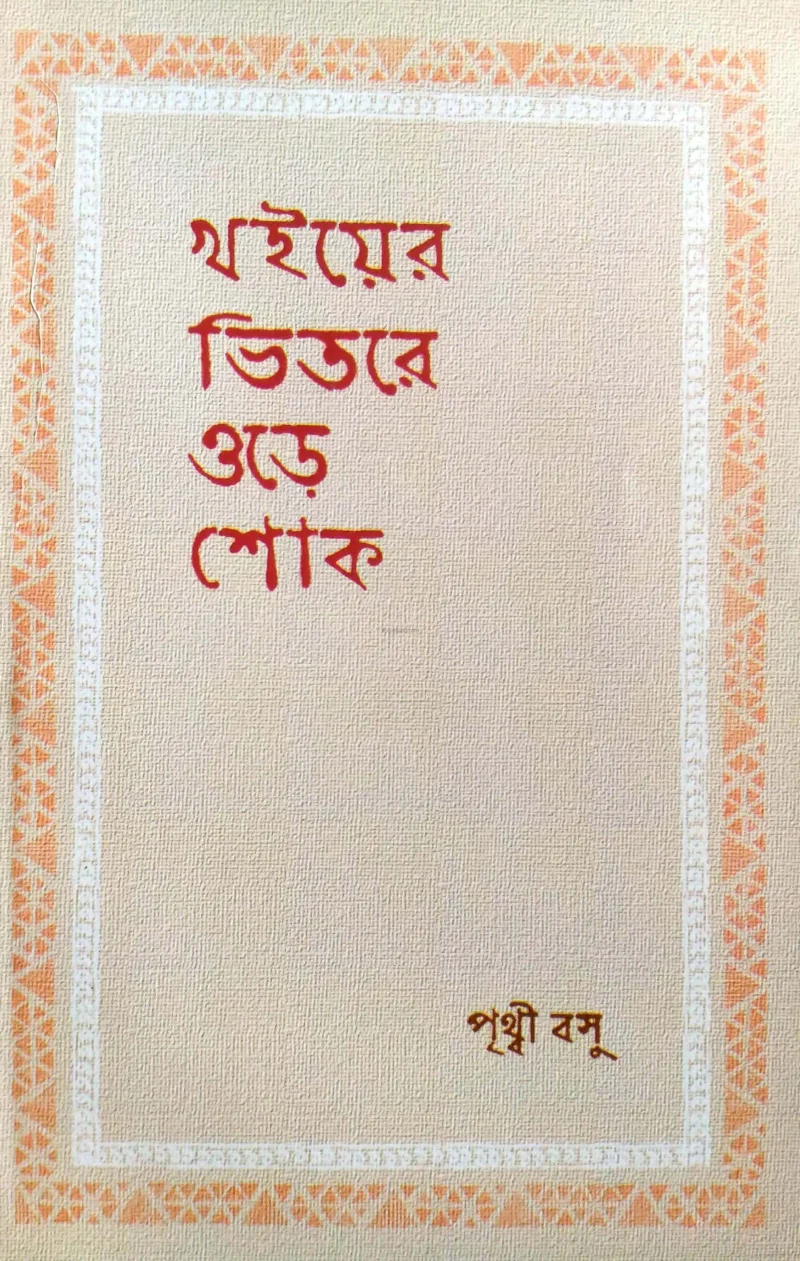 খইয়ের
ভিতরে
ওড়ে
শোক
পৃথ্বী বসু